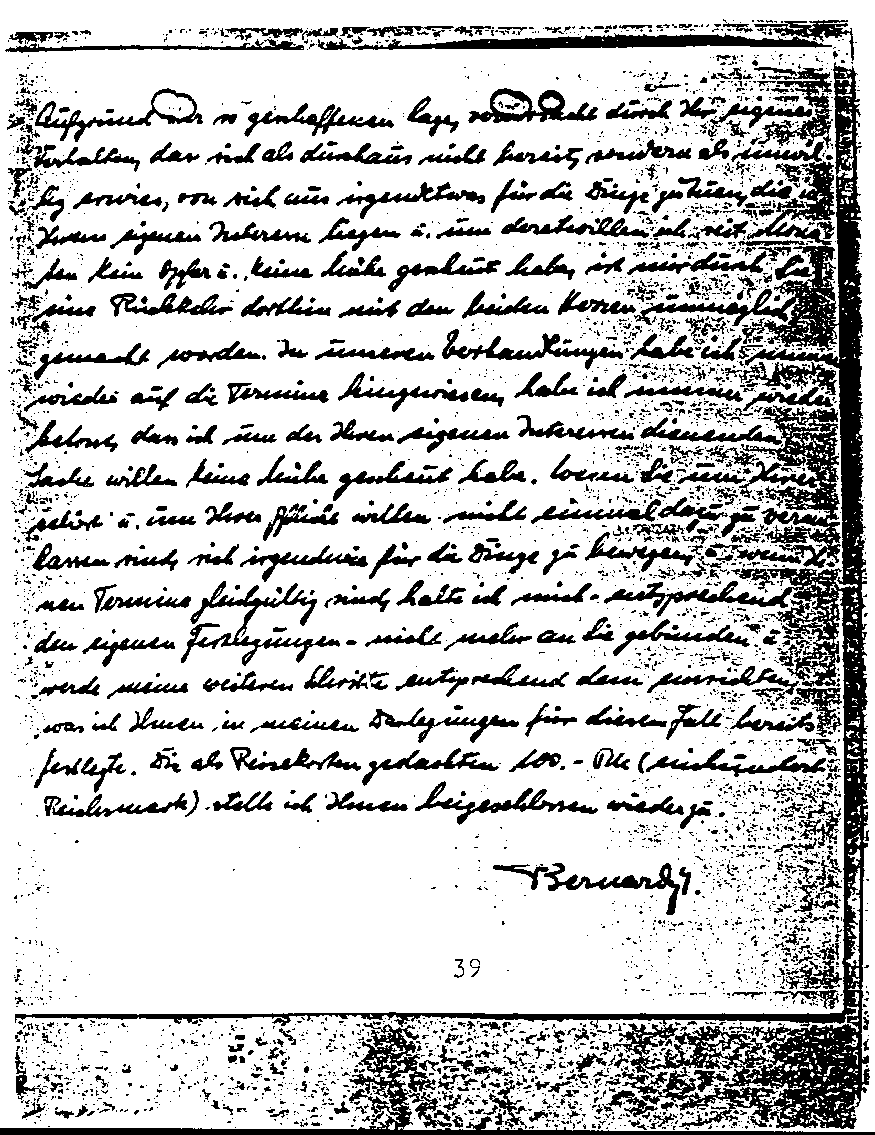 Aufgrund der so geschaffenen Lage, verursacht durch Ihr eigenes
Verhalten, das sich als durchaus nicht bereit, sondern als unwil-
lig erwies, von sich aus irgendetwas für die Dinge zu tuen, die in
Ihrem eigenen Interesse liegen u. um deretwillen ich seit Mona-
ten kein Opfer u. keine Mühe gescheut habe, ist mir durch Sie
eine Rückkehr dorthin mit den beiden Herren unmöglich
gemacht worden. In unseren Verhandlungen habe ich immer
wieder auf die Termine hingewiesen, habe ich immer wieder
betont, dass ich um der Ihren eigenen Interessen dienenden
Sache willen keine Mühe gescheut habe. Wenn Sie um Ihrer
selbst u. um Ihrer Pflicht willen nicht einmal dazu zu veran-
lassen sind, sich irgendwie für die Dinge zu bewegen, u. wenn Ih-
nen Termine gleichgültig sind, halte ich mich - entsprechend
den eigenen Festlegungen - nicht mehr an Sie gebunden u.
werde meine weiteren Schritte entsprechend dem einrichten,
was ich Ihnen in meinen Darlegungen für diesen Fall bereits
festlegte. Die als Reisekosten gedachten 100.- RM (einhundert
Reichsmark) stelle ich Ihnen beigeschlossen wieder zu.
Bernardy.
39